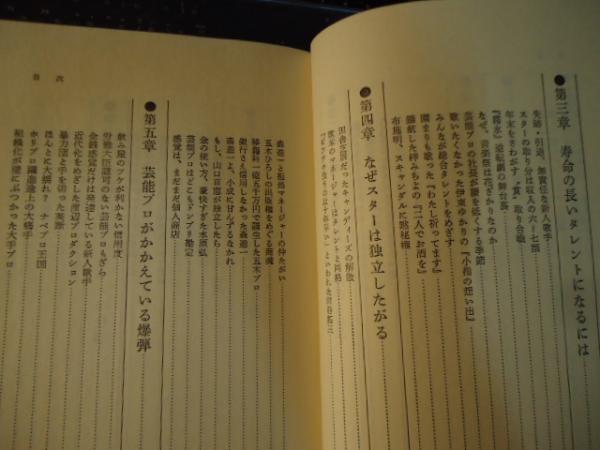 ●第三章　寿命の長いタレントになるには
失踪・引退、無責任な新人歌手
スターの取り分は収入の六〜七割
年末をさわがす〝賞〟取り合戦
『霧氷』逆転劇の舞台裏
なぜ、音楽祭は花ざかりなのか
芸能プロの社長が頭を低くする季節
歌いたくなかった伊東ゆかりの『小指の想い出』
みんなが総合タレントをめざす
園まりも歌った『わたし祈ってます』
固執した梓みちよの『二人でお酒を』
布施明、スキャンダルに黙秘権
●第四章　なぜスターは独立したがる
田舎芝居だったキャンディーズの解散
歌手のマネージャーはタレントと同格
森進一と担当マネージャーの仲たがい
五木ひろしの出版権をめぐる商魂
移籍料一億五千万円で誕生した五木プロ
銀行さえ信用しなかった森進一
森進一よ、小成に甘んずるなかれ
もし、山口百恵が独立したら
金の使い方、豪快すぎた水原弘
芸能プロはどこもドンブリ勘定
感覚は、まだまだ個人商店
目次
●第五章　芸能プロがかかえている爆弾
飲み屋のツケが利かない信用度
労働大臣認可のない芸能プロもざら
金銭感覚だけは発達している新人歌手
近代化をめざした渡辺プロダクション
暴力団と手を切った英断
ほんとに大揺れ？　ナベプロ王国
ホリプロ躍進途上の大痛手
組織化が壁にぶつかった大手プロ